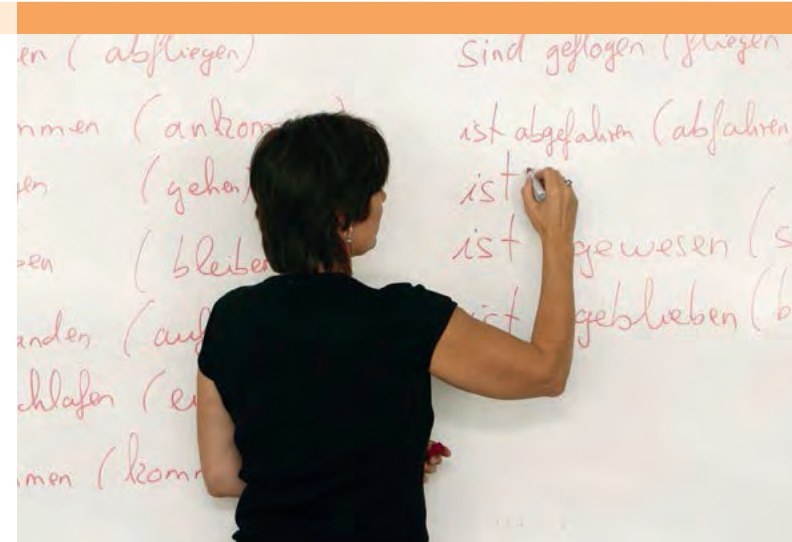 en (abfliegen)
mmen (ankom
gen (gehen)
ben (bleiben
anden (auf
chlafen (e
men (kom
sind geflogen (fliegen
ist abgefahren (abfahren
ist
ist gewesen (s
ist geblieben (b